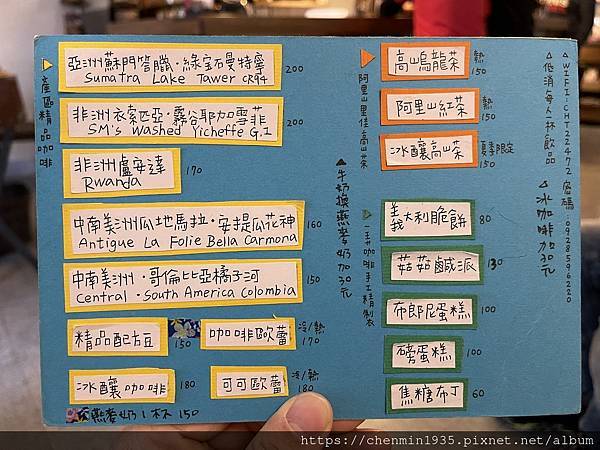 產區精品咖啡
亞洲蘇門答臘·綠寶石曼特寧
Sumatra Lake Tawer CR94
200
非洲衣索匹亞·霧谷耶加雪菲
SM's Washed Yicheffe G.1
200
非洲盧安達
Rwanda
170
中南美洲瓜地馬拉·安提瓜花神
Antigue La Folie Bella Carmona
160
中南美洲·哥倫比亞橘子河
Central·South America Colombia
150
精品配方豆
150
咖啡歐蕾
冷/熱
170
冰釀咖啡
180
可可歐蕾
冷/熱
180
燕麥奶1杯 150
▲牛奶換燕麥奶加30元
阿里山里佳高山茶
高山烏龍茶
熱
150
阿里山紅茶
熱
150
冰釀高山茶
夏季限定
150
咖啡手工精製
義大利脆餅
80
菇菇鹹派
130
布朗尼蛋糕
100
磅蛋糕
100
焦糖布丁
60
▲WIFI:CHT22472 密碼:0928596220
▲低消每人一杯飲品
▲冰咖啡加30元
https://chenmin1935.pixnet.net/album